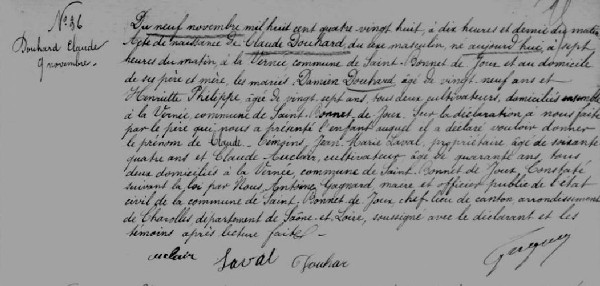 N° 36
Douhard Claude
9 novembre
Du neuf novembre mil huit cent quatre vingt huit, à dix heures et demie du matin
Acte de naissance de Claude Douhard, du sexe masculin, né aujourd'hui, à sept
heures du matin, à la Vernée commune de Saint-Bonnet de Joux et au domicile
de ses père et mère, les mariés Damien Douhard âgé de vingt neuf ans et
Henriette Philippe âgée de vingt sept ans, tous deux cultivateurs, domiciliés ensemble
à la Vernée, commune de Saint-Bonnet, de Joux. Sur la déclaration à nous faite
par le père qui nous a présenté l'enfant auquel il a déclaré vouloir donner
le prénom de Claude. Témoins, Jean-Marie Laval, propriétaire âgé de soixante
quatre ans et Claude Auclair, cultivateur âgé de quarante ans, tous
deux domiciliés à la Vernée, commune de Saint-Bonnet de Joux. Constaté
suivant la loi par Nous, Antoine Gagnard, maire et officier public de l'état
civil de la commune de Saint-Bonnet de Joux, chef-lieu de canton, arrondissement
de Charolles, département de Saône-et-Loire, soussigné avec le déclarant et les
témoins après lecture faite.
auclair Laval Douhar